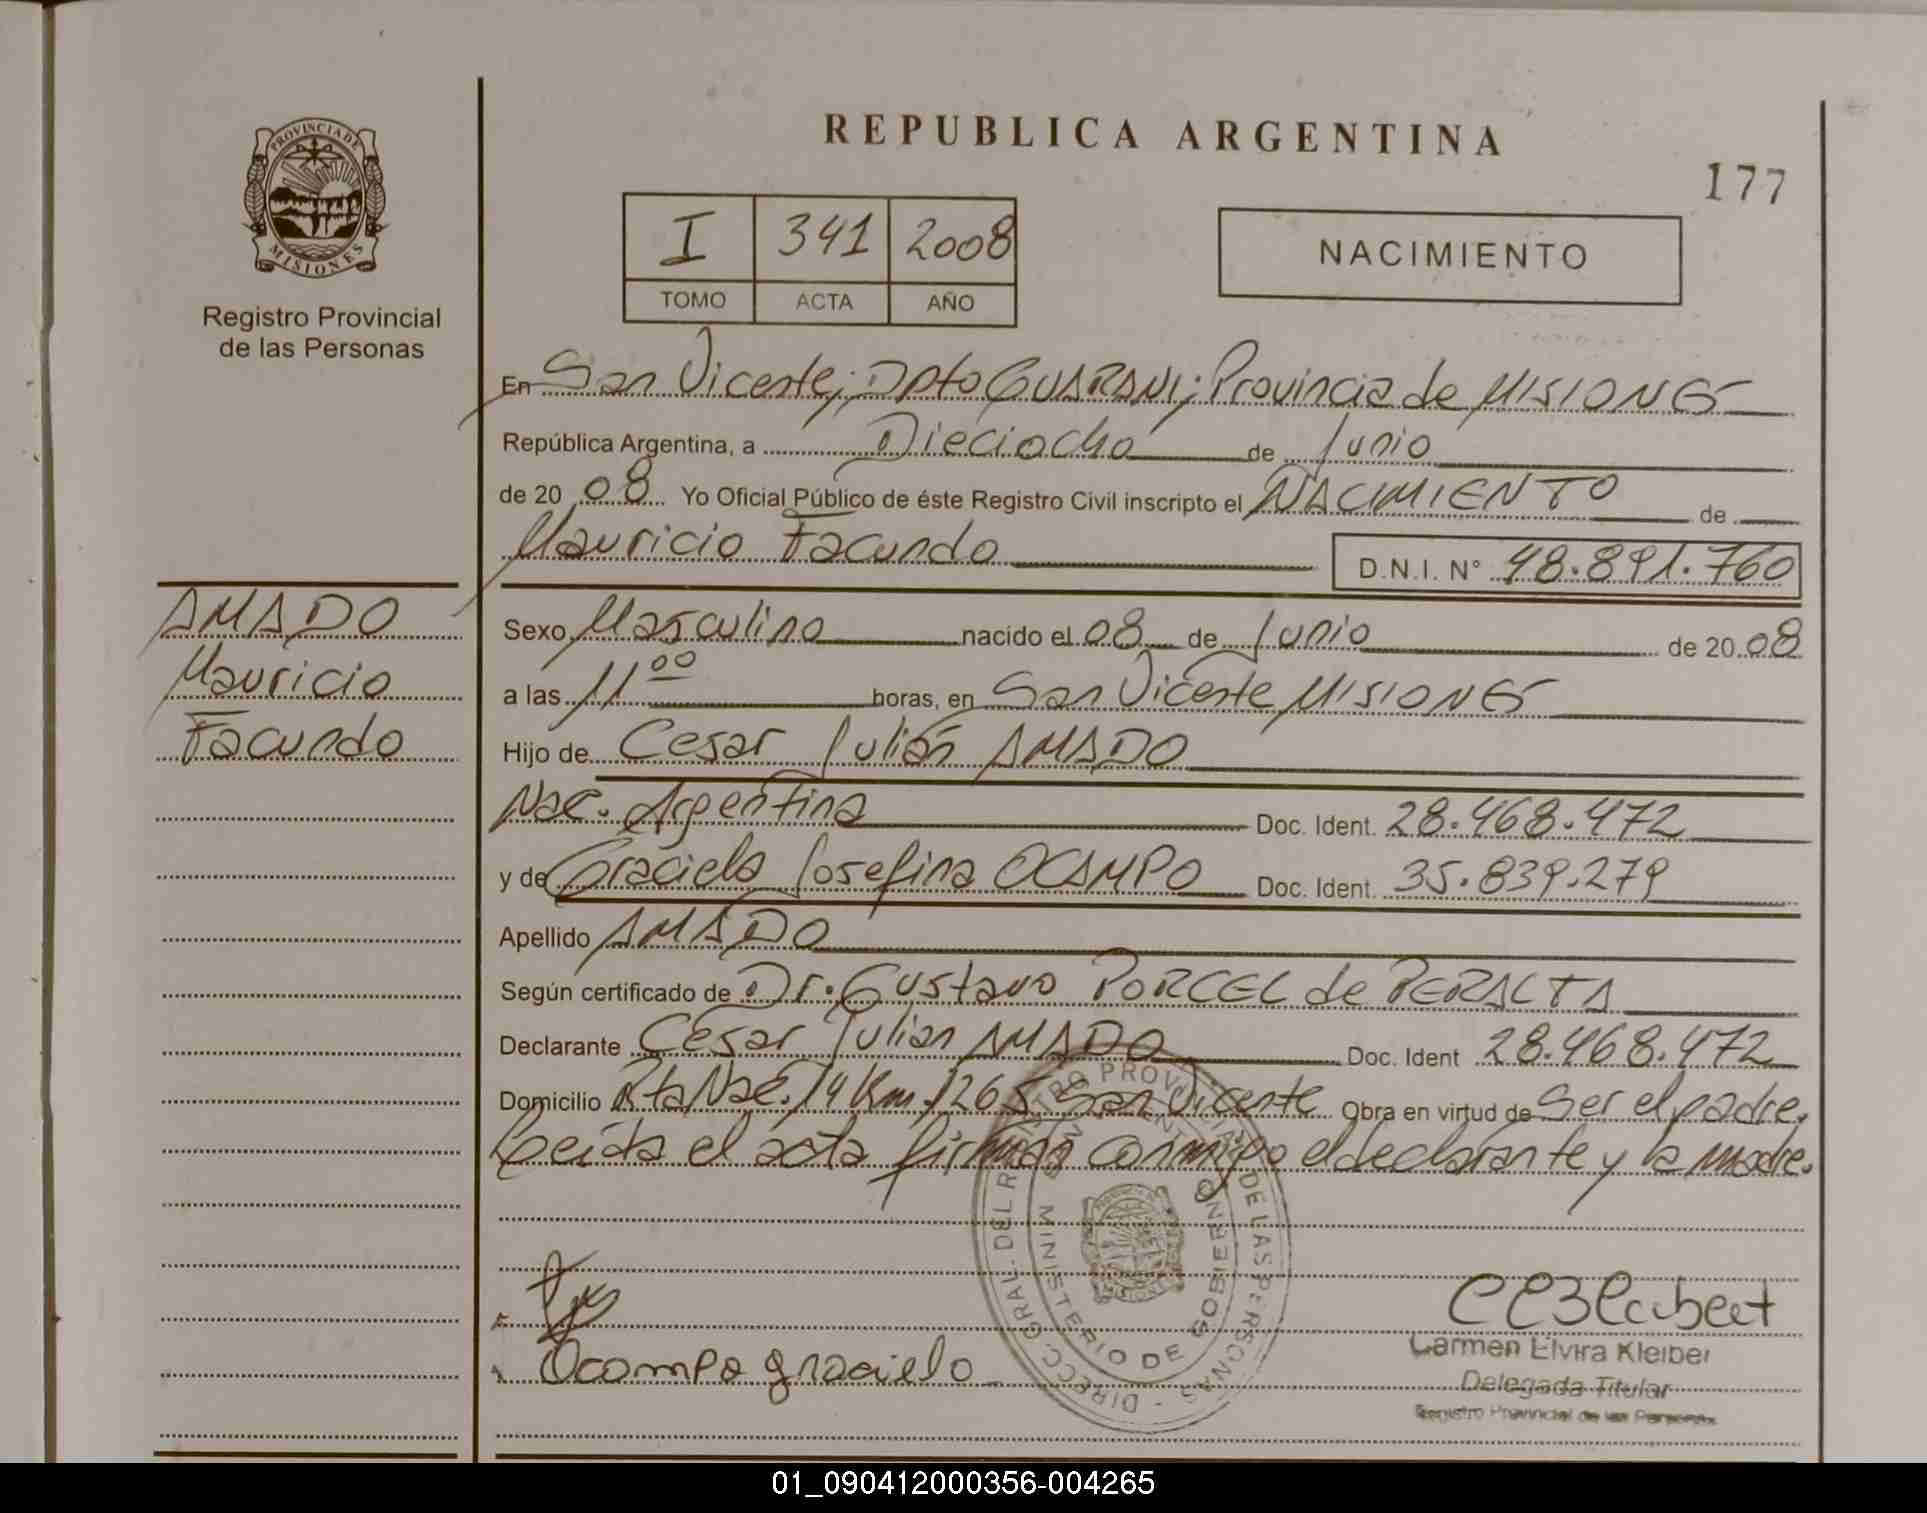 REPUBLICA ARGENTINA
177
PROVINCIA DE MISIONES
Registro Provincial
de las Personas
I 341 2008
TOMO ACTA AÑO
NACIMIENTO
En San Vicente; Dpto GUARANI; Provincia de MISIONES
República Argentina, a Dieciocho de Junio
de 2008 Yo Oficial Público de éste Registro Civil inscripto el NACIMIENTO de
Mauricio Facundo D.N.I. N° 48.891.760
AMADO
Mauricio
Facundo
Sexo Masculino nacido el 08 de Junio de 2008
a las 11 00 horas, en San Vicente MISIONES
Hijo de Cesar Julián AMADO
Nac. Argentina Doc. Ident. 28.468.472
y de Graciela Josefina OCAMPO Doc. Ident. 35.839.279
Apellido AMADO
Según certificado de Dr. Gustavo PORCEL de PERALTA
Declarante César Julian AMADO Doc. Ident 28.468.472
Domicilio Rta Nac. 14 Km. 1265 San Vicente Obra en virtud de Ser el padre.
Leida el acta firman conmigo el declarante y la madre.
DIRECC. GRAL. DEL REGISTRO PROVINCIAL DE LAS PERSONAS
MINISTERIO DE GOBIERNO
Ocampo graciela
Carmen Elvira Kleiber
Delegada Titular
Registro Provincial de las Personas
01_090412000356-004265